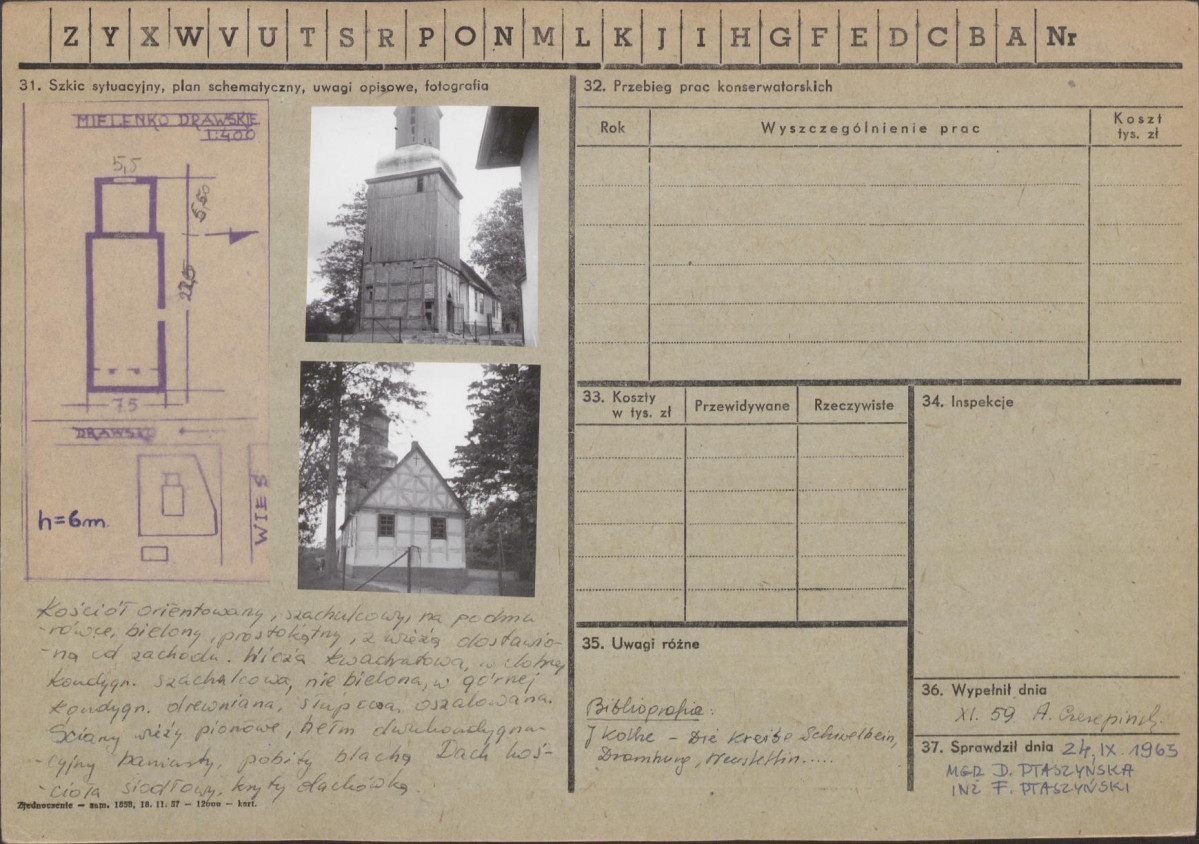 Z Y X W V U T S R P O N M L K J I H G F E D C B A Nr
31. Szkic sytuacyjny, plan schematyczny, uwagi opisowe, fotografia
MIELENKO DRAWSKIE
1:400
5,5
5,50
7.5
DRAWSKO
WIEŚ
h=6m.
Kościół orientowany, szachulcowy, na podmu
-rówce, bielony, prostokątny, z wieżą dostawio-
-ną od zachodu. Wieża kwadratowa, w dolnej
kondygn. szachulcowa, nie bielona, w górnej
kondygn. drewniana, słupowa, oszalowana.
Ściany wieży pionowe, hełm dwukondygna-
-cyjny baniasty, pobity blachą. Dach koś-
-cioła siodłowy, kryty dachówką.
Zjednoczenie — zam. 1888, 18. 11. 57 — 12000 — kart.
32. Przebieg prac konserwatorskich
Rok
Wyszczególnienie prac
Koszt
tys. zł
33. Koszty
w tys. zł
Przewidywane
Rzeczywiste
34. Inspekcje
35. Uwagi różne
Bibliografia:
J Kothe - Die Kreise Schivelbein,
Dramburg, Neustettin.....
36. Wypełnił dnia
XI. 59 A.
37. Sprawdził dnia 24, IX 1965
MGR D. PTASZYŃSKA
INŻ F. PTASZYŃSKI